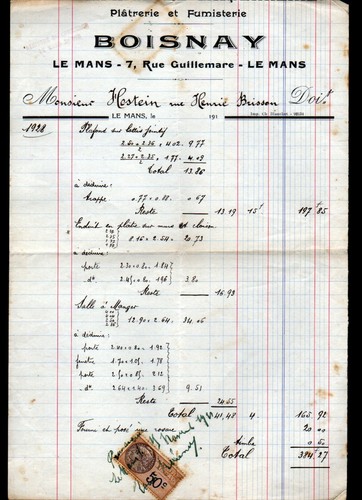 Plâtrerie et Fumisterie
BOISNAY
LE MANS - 7, Rue Guillemare - LE MANS
Monsieur Hostein rue Henri Brisson Doit
LE MANS, le 191
1921 Plafond sur lattis jointif
4.02 9.77
1.77 4.09
Total 13.86
à déduire:
trappe 0.77 × 0.88 0.67
Reste 13.19 15f 197 85
Enduit en plâtre sur murs et cloison
8.16 × 2.54 = 20.73
à déduire:
porte 2.30 × 0.80 = 1.84
do 2.45 × 0.80 1.96 3.80
Reste 16.93
Salle à Manger
12.90 × 2.64 34.06
à déduire:
porte 2.40 × 0.80 = 1.92
fenêtre 1.70 × 1.05 1.78
porte 2.50 × 0.85 2.12
do 2.64 × 2.40 2.69 9.51
Reste 24.55
Total 41,48 4 165 92
Fourni et posé une rosace 20 00
timbre 0 50
Total 384 27
50c